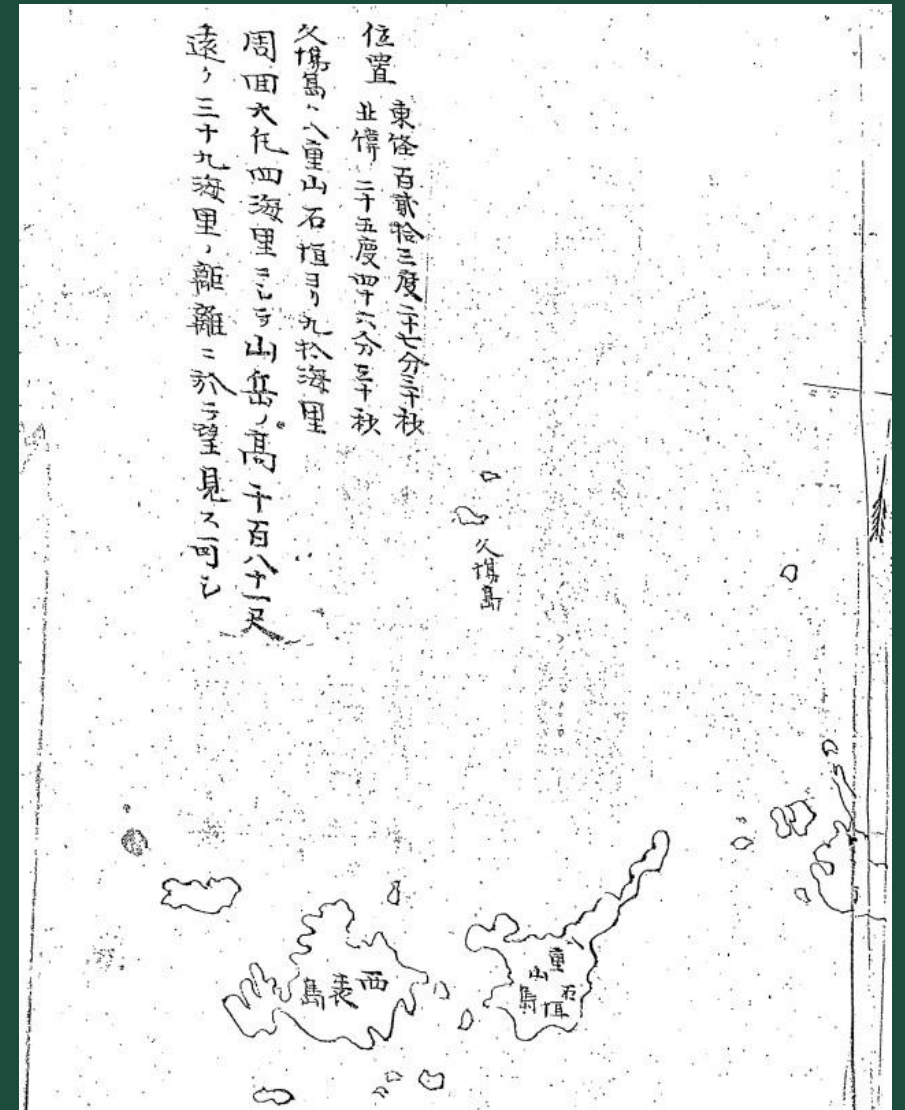 位置
東経百貳拾三度二十七分三十秒
北緯二十五度四十六分三十秒
久場島ハ八重山石垣ヨリ九拾海里
周回大凡四海里ニシテ山岳ノ高千百八十一尺
遠ク三十九海里ノ距離ニ於テ望見ス可シ
久場島
重山
石垣島
西表島